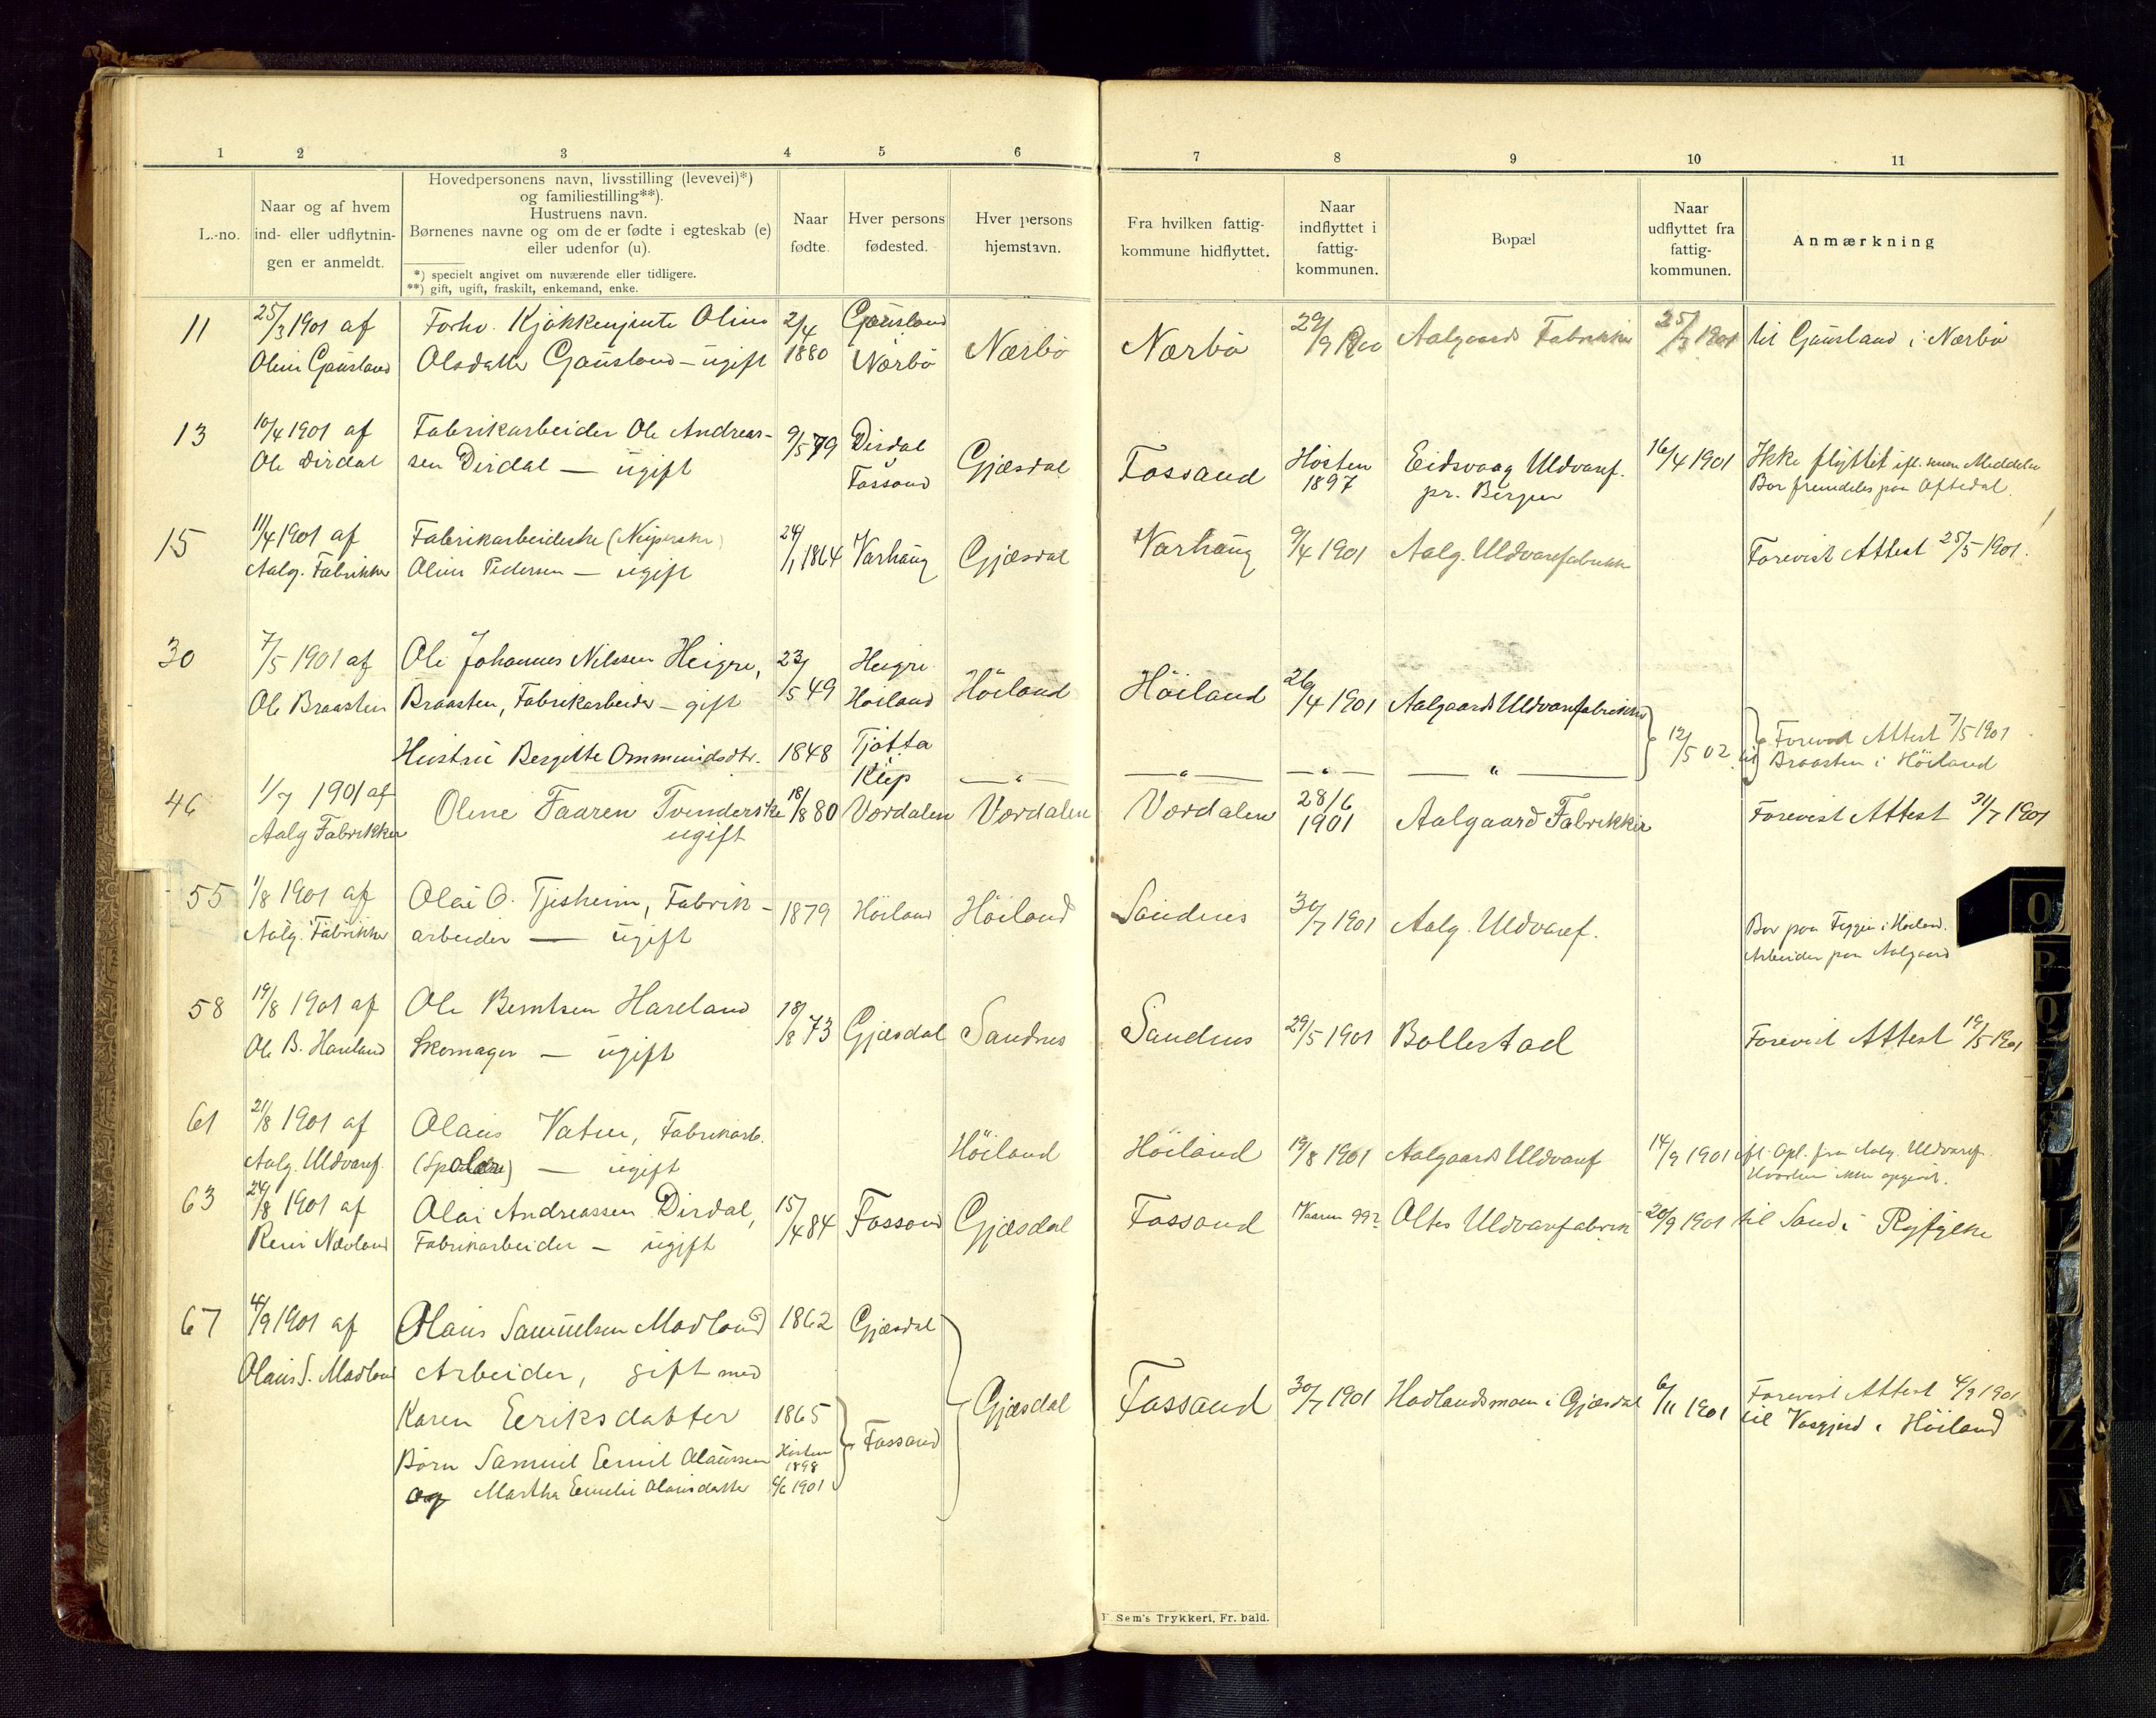 1 2 3 4 5 6 7 8 9 10 11
L.-no.
Naar og af hvem
ind- eller udflytnin-
gen er anmeldt.
Hovedpersonens navn, livsstilling (levevei)*)
og familiestilling**).
Hustruens navn.
Børnenes navne og om de er fødte i egteskab (e)
eller udenfor (u).
*) specielt angivet om nuværende eller tidligere.
**) gift, ugift, fraskilt, enkemand, enke.
Naar
fødte.
Hver persons
fødested.
Hver persons
hjemstavn.
Fra hvilken fattig-
kommune hidflyttet.
Naar
indflyttet i
fattig-
kommunen.
Bopæl
Naar
udflyttet fra
fattig-
kommunen.
Anmærkning
11 25/3 1901 af Forhv. Kjøkkenjente Oline 2/4 Gausland Nærbö Nærbö 29/9 1900 Aalgaards Fabrikker 25/3 1901 til Gausland i Nærbö
Oline Gausland Olsdatter Gausland — ugift 1880 Nærbö
13 10/4 1901 af Fabrikarbeider Ole Andreas- 9/5 79 Dirdal Gjæsdal Fossand Hösten Eidsvaag Uldvaref. 16/4 1901 Ikke flyttet ifl. senere Meddelse
Ole Dirdal sen Dirdal — ugift Fossand 1897 pr. Bergen Bor fremdeles paa Oftedal.
15 11/4 1901 af Fabrikarbeiderske (Nopperske) 24/1 1864 Varhaug Gjæsdal Varhaug 9/4 1901 Aalg. Uldvarefabrikk Forevist Attest 25/5 1901.
Aalg. Fabrikker Oline Pedersen — ugift
30 7/5 1901 af Ole Johannes Nilssen Heigre, 23/ Heigre Höiland Höiland 26/4 1901 Aalgaards Uldvarefabrikker
Ole Braasten Braasten, Fabrikarbeider — gift 1549 Höiland
Hustru Bergitte Ommundsdtr. 1848 Tjøtta 12/5 02 til Forevist Attest 7/5 1901
Klep — " — — " — — " — — " — Braasten i Höiland
46 1/7 1901 af Oline Faaren Tvinderske 18/8 80 Værdalen Værdalen Værdalen 28/6 Aalgaard Fabrikker Forevist Attest 31/7 1901
Aalg Fabrikker ugift 1901
55 1/8 1901 af Olai O. Tjesheim, Fabrik- 1879 Höiland Höiland Sandnes 30/7 1901 Aalg. Uldvaref. Bor paa Figgen i Höiland.
Aalg. Fabrikker arbeider — ugift Arbeider paa Aalgaard
58 19/8 1901 af Ole Berntsen Hareland 18/8 73 Gjæsdal Sandnes Sandnes 29/5 1901 Bollestad Forevist Attest 19/5 1901
Ole B. Hareland Skomager — ugift
61 21/8 1901 af Olaus Vatne, Fabrikarb. Höiland Höiland 19/8 1901 Aalgaards Uldvaref 14/9 1901 ifl. Opl. fra Aalg. Uldvaref.
Aalg. Uldvaref. — ugift Hvorhen ikke opgivet.
63 24/8 1901 af Olai Andreassen Dirdal, 15/4 84 Fossand Gjæsdal Fossand Vaaren 99? Oltes Uldvarefabrik 20/9 1901 til Sand i Ryfylke
Reier Nævland Fabrikarbeider — ugift
67 4/9 1901 af Olaus Samuelsen Madland 1862 Gjæsdal
Olaus S. Madland Arbeider, gift med
Karen Eeriksdatter 1865 Fossand Gjæsdal Fossand 30/7 1901 Madlandsmoen i Gjæsdal 6/11 1901 Forevist Attest 4/9 1901
til Vasgjerd i Höiland
Börn Samuel Eemil Olaussen Hösten 1898
og Martha Eemelie Olausdatter 6/6 1901
F. Sem's Trykkeri, Fr. hald.
O
P
Q
T
Z